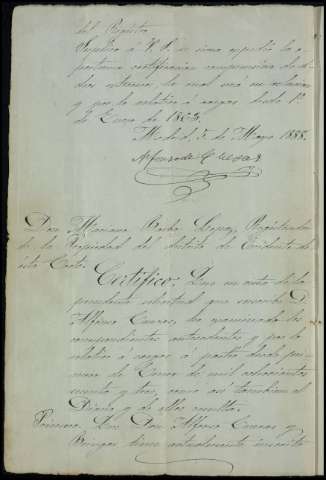 del Registro
Suplico á V. S. se sirva expedir la o-
portuna certificacion comprensiva de di-
chos extremos, la cual será en relacion
y por lo relativo á cargas desde 1º
de Enero de 1863.
Madrid, 5 de Mayo 1888.
Alfonso de
Don Mariano Lopez, Registrador
de la Propiedad del distrito de Occidente de
ésta Corte.
Certifico: Que en vista de la
precedente solicitud que suscribe D.
Alfonso he examinado los
correspondientes antecedentes y por lo
relativo á cargas á partir desde pri-
mero de Enero de mil ochocientos
sesenta y tres, como así tambien el
Diario y de ellos resulta:
Primero. Que Don Alfonso y
tiene actualmente inscrita